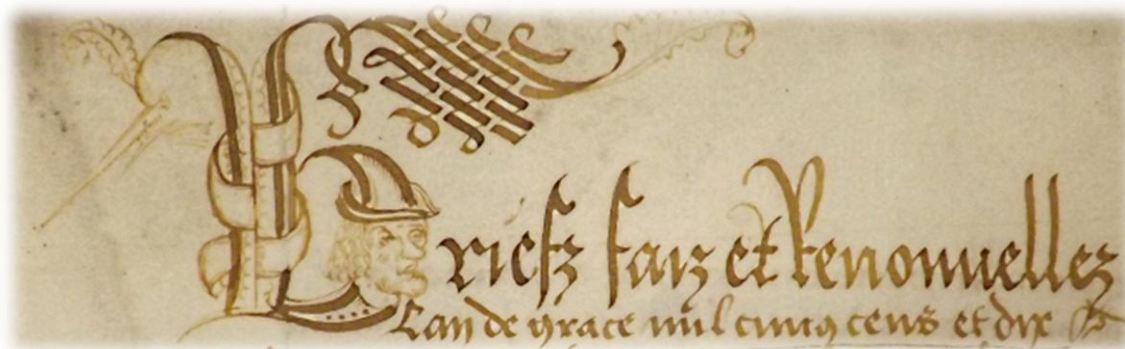 Briefz faiz et Renouvellez
Lan de grace mil cincq cens et dix